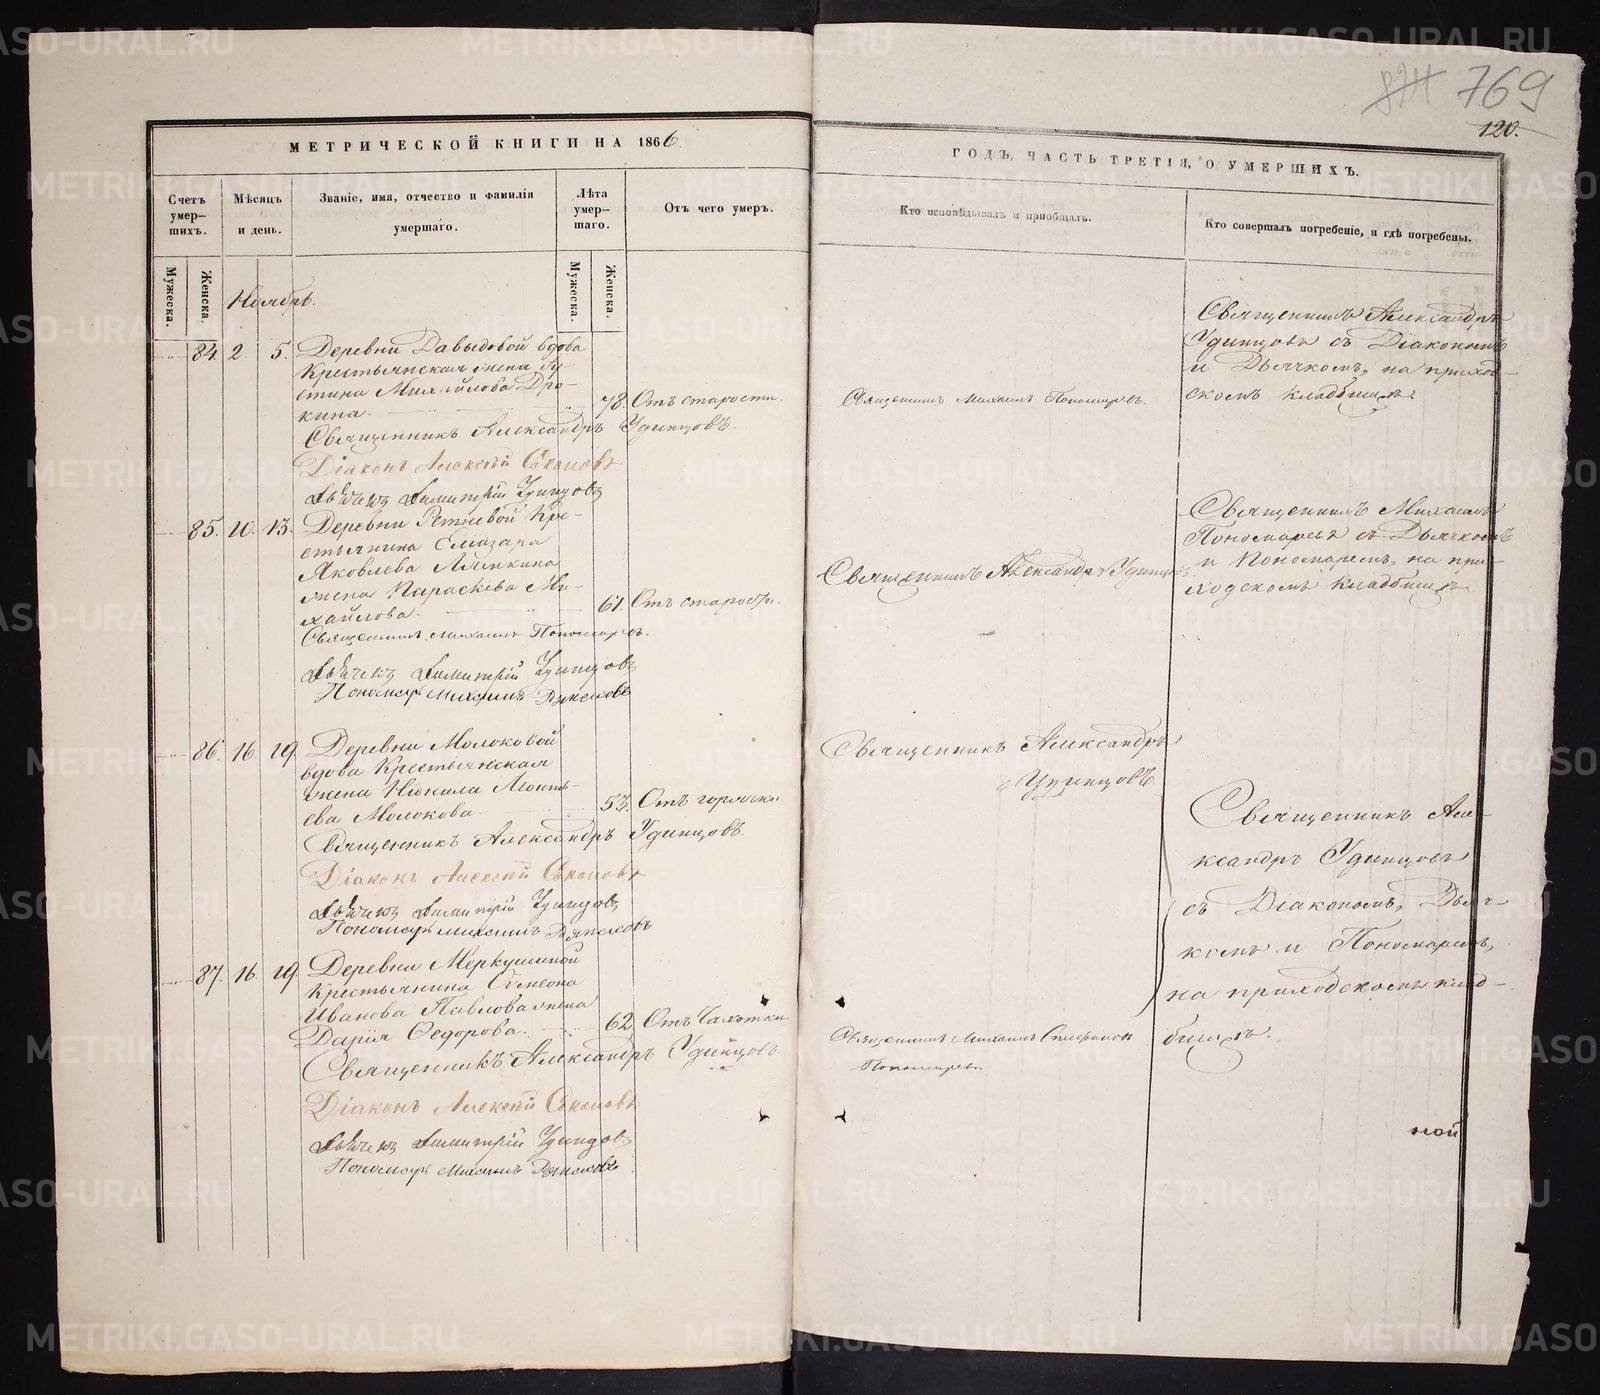 769
120.
МЕТРИЧЕСКОЙ КНИГИ НА 1866
ГОДЪ, ЧАСТЬ ТРЕТІЯ, О УМЕРШИХЪ.
Счетъ умер-
шихъ.
Мѣсяцъ
и день.
Званіе, имя, отчество и фамилія
умершаго.
Лѣта
умер-
шаго.
Отъ чего умеръ.
Кто исповѣдывалъ и пріобщалъ.
Кто совершалъ погребеніе, и гдѣ погребены.
Мужеска.
Женска.
Мужеска.
Женска.
Ноябрь.
84. 2 5. Деревни Давыдовой вдова
Крестьянская жена
Михайлова Дро-
кина. 78. Отъ старости.
Священникъ Александръ Удинцовъ.
Діаконъ Алексѣй
Дьячекъ Димитрій Удинцовъ
Священникъ Михаилъ Пономаревъ.
Священникъ Александръ
Удинцовъ съ Діакономъ
и Дьячкомъ, на приход-
скомъ кладбищѣ.
85. 10. 13. Деревни Ретневой Кре-
стьянина Елиазара
Яковлева Алямкина
жена Параскева Ми-
хайлова. 61. Отъ старости.
Священникъ Михаилъ Пономаревъ.
Дьячекъ Димитрій Удинцовъ
Пономарь Михаилъ
Священникъ Александръ Удинцовъ
Священникъ Михаилъ
Пономаревъ съ Дьячкомъ
и Пономаремъ, на при-
ходскомъ кладбищѣ
86. 16 19. Деревни Молоковой
вдова Крестьянская
жена Неонила Леонть-
ева Молокова 53. Отъ горячки
Священникъ Александръ Удинцовъ.
Діаконъ Алексѣй
Дьячекъ Димитрій Удинцовъ
Пономарь Михаилъ
Священникъ Александръ
Удинцовъ.
87. 16. 19. Деревни Меркушиной
Крестьянина Симеона
Иванова Павлова жена
Дарія Ѳедорова. 62. Отъ Чахотки.
Священникъ Александръ Удинцовъ
Діаконъ Алексѣй
Дьячекъ Димитрій Удинцовъ
Пономарь Михаилъ
Священникъ Михаилъ
Пономаревъ
Священникъ Але-
ксандръ Удинцовъ
съ Діакономъ, Дьяч-
комъ и Пономаремъ,
на приходскомъ клад-
бищѣ.
ной
METRIKI.GASO-URAL.RU